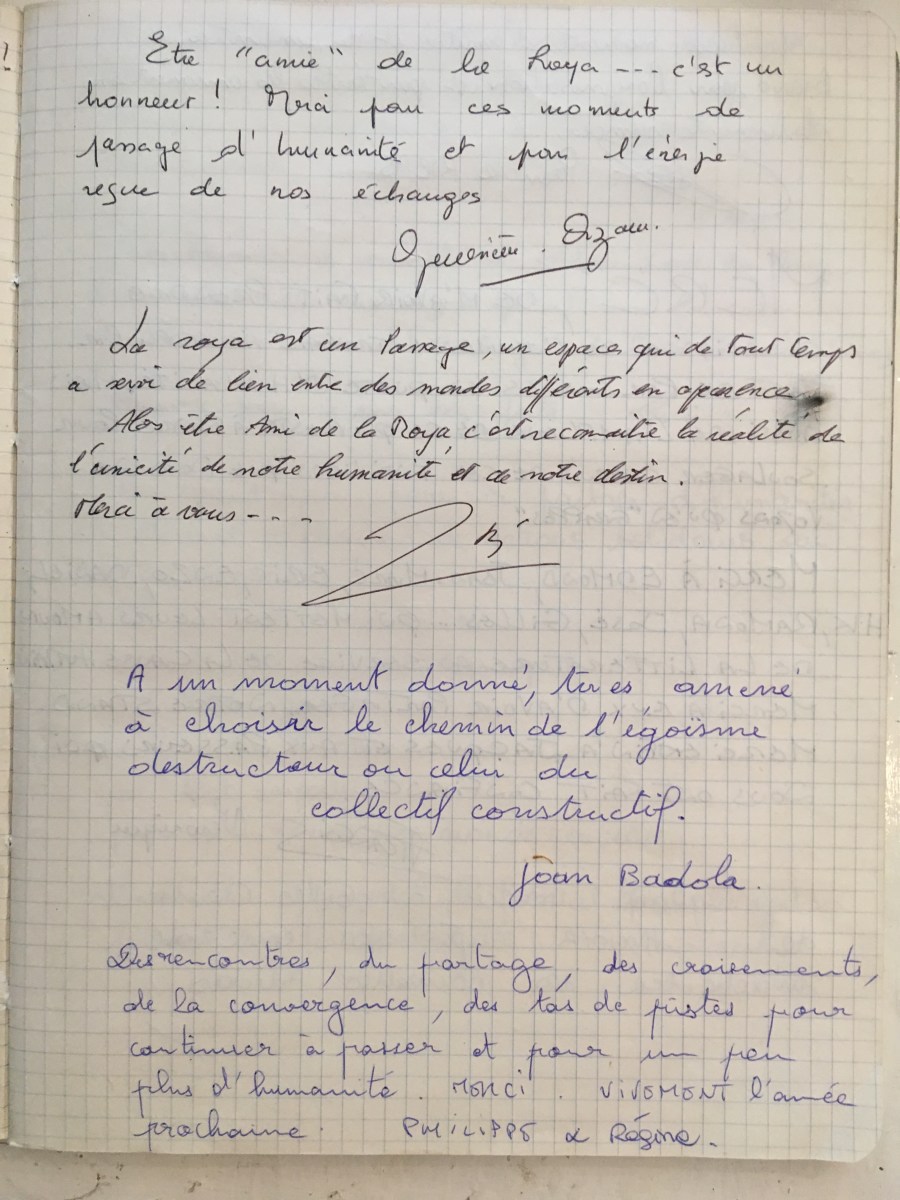 Etre "amie" de la Roya --- c'est un
honneur ! Merci pour ces moments de
passage d'humanité et pour l'énergie
reçue de nos échanges
La roya est un Passage, un espace qui de tout temps
a servi de lien entre des mondes différents en aparence
Alors être Ami de la Roya, c'est reconnaitre la réalité de
l'unicité de notre humanité et de notre destin.
Merci à vous - - -
A un moment donné, tu es amené
à choisir le chemin de l'égoïsme
destructeur ou celui du
collectif constructif.
Joan Badola.
Des rencontres, du partage, des croisements,
de la convergence, des tas de pistes pour
continuer à passer et pour un peu
plus d'humanité. MERCI. VIVEMENT l'année
prochaine. PHILIPPE & Régine.